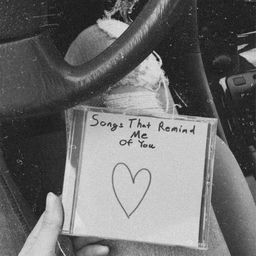 Songs That Remind
Me
Of You